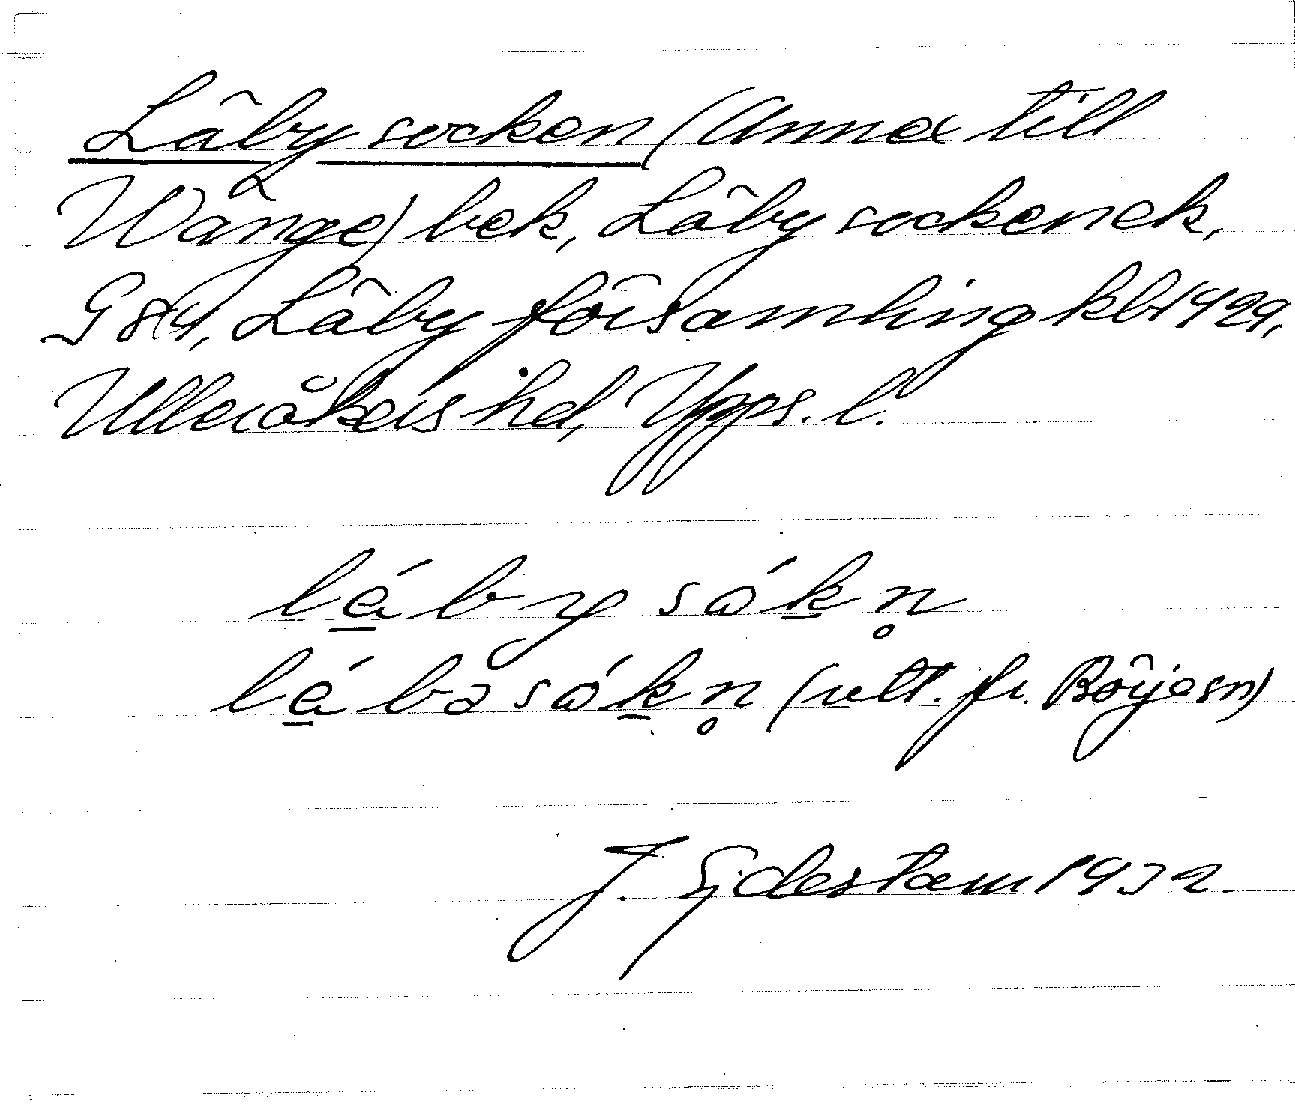 Läby socken (Annex till
Wänge) bek, Läby socken ek,
G84, Läby församling kb 1929,
Ulleråkers hd, Upps. l.
lá̱by sóḵn̥
lá̱bəsóḵn̥ (utt. fr. Börje sn)
J. Sjdestam 1932.